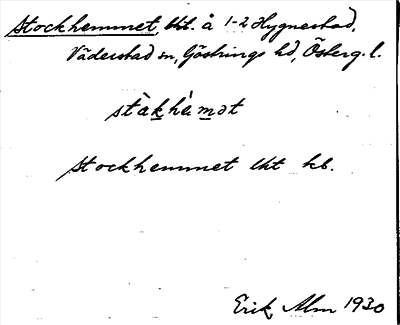 Stockhemmet, lht. å 1-2 Hygnestad,
Väderstad sn, Göstrings hd, Österg. l.
stàkhèmət
Stockhemmet lht kb.
Erik Alm 1930